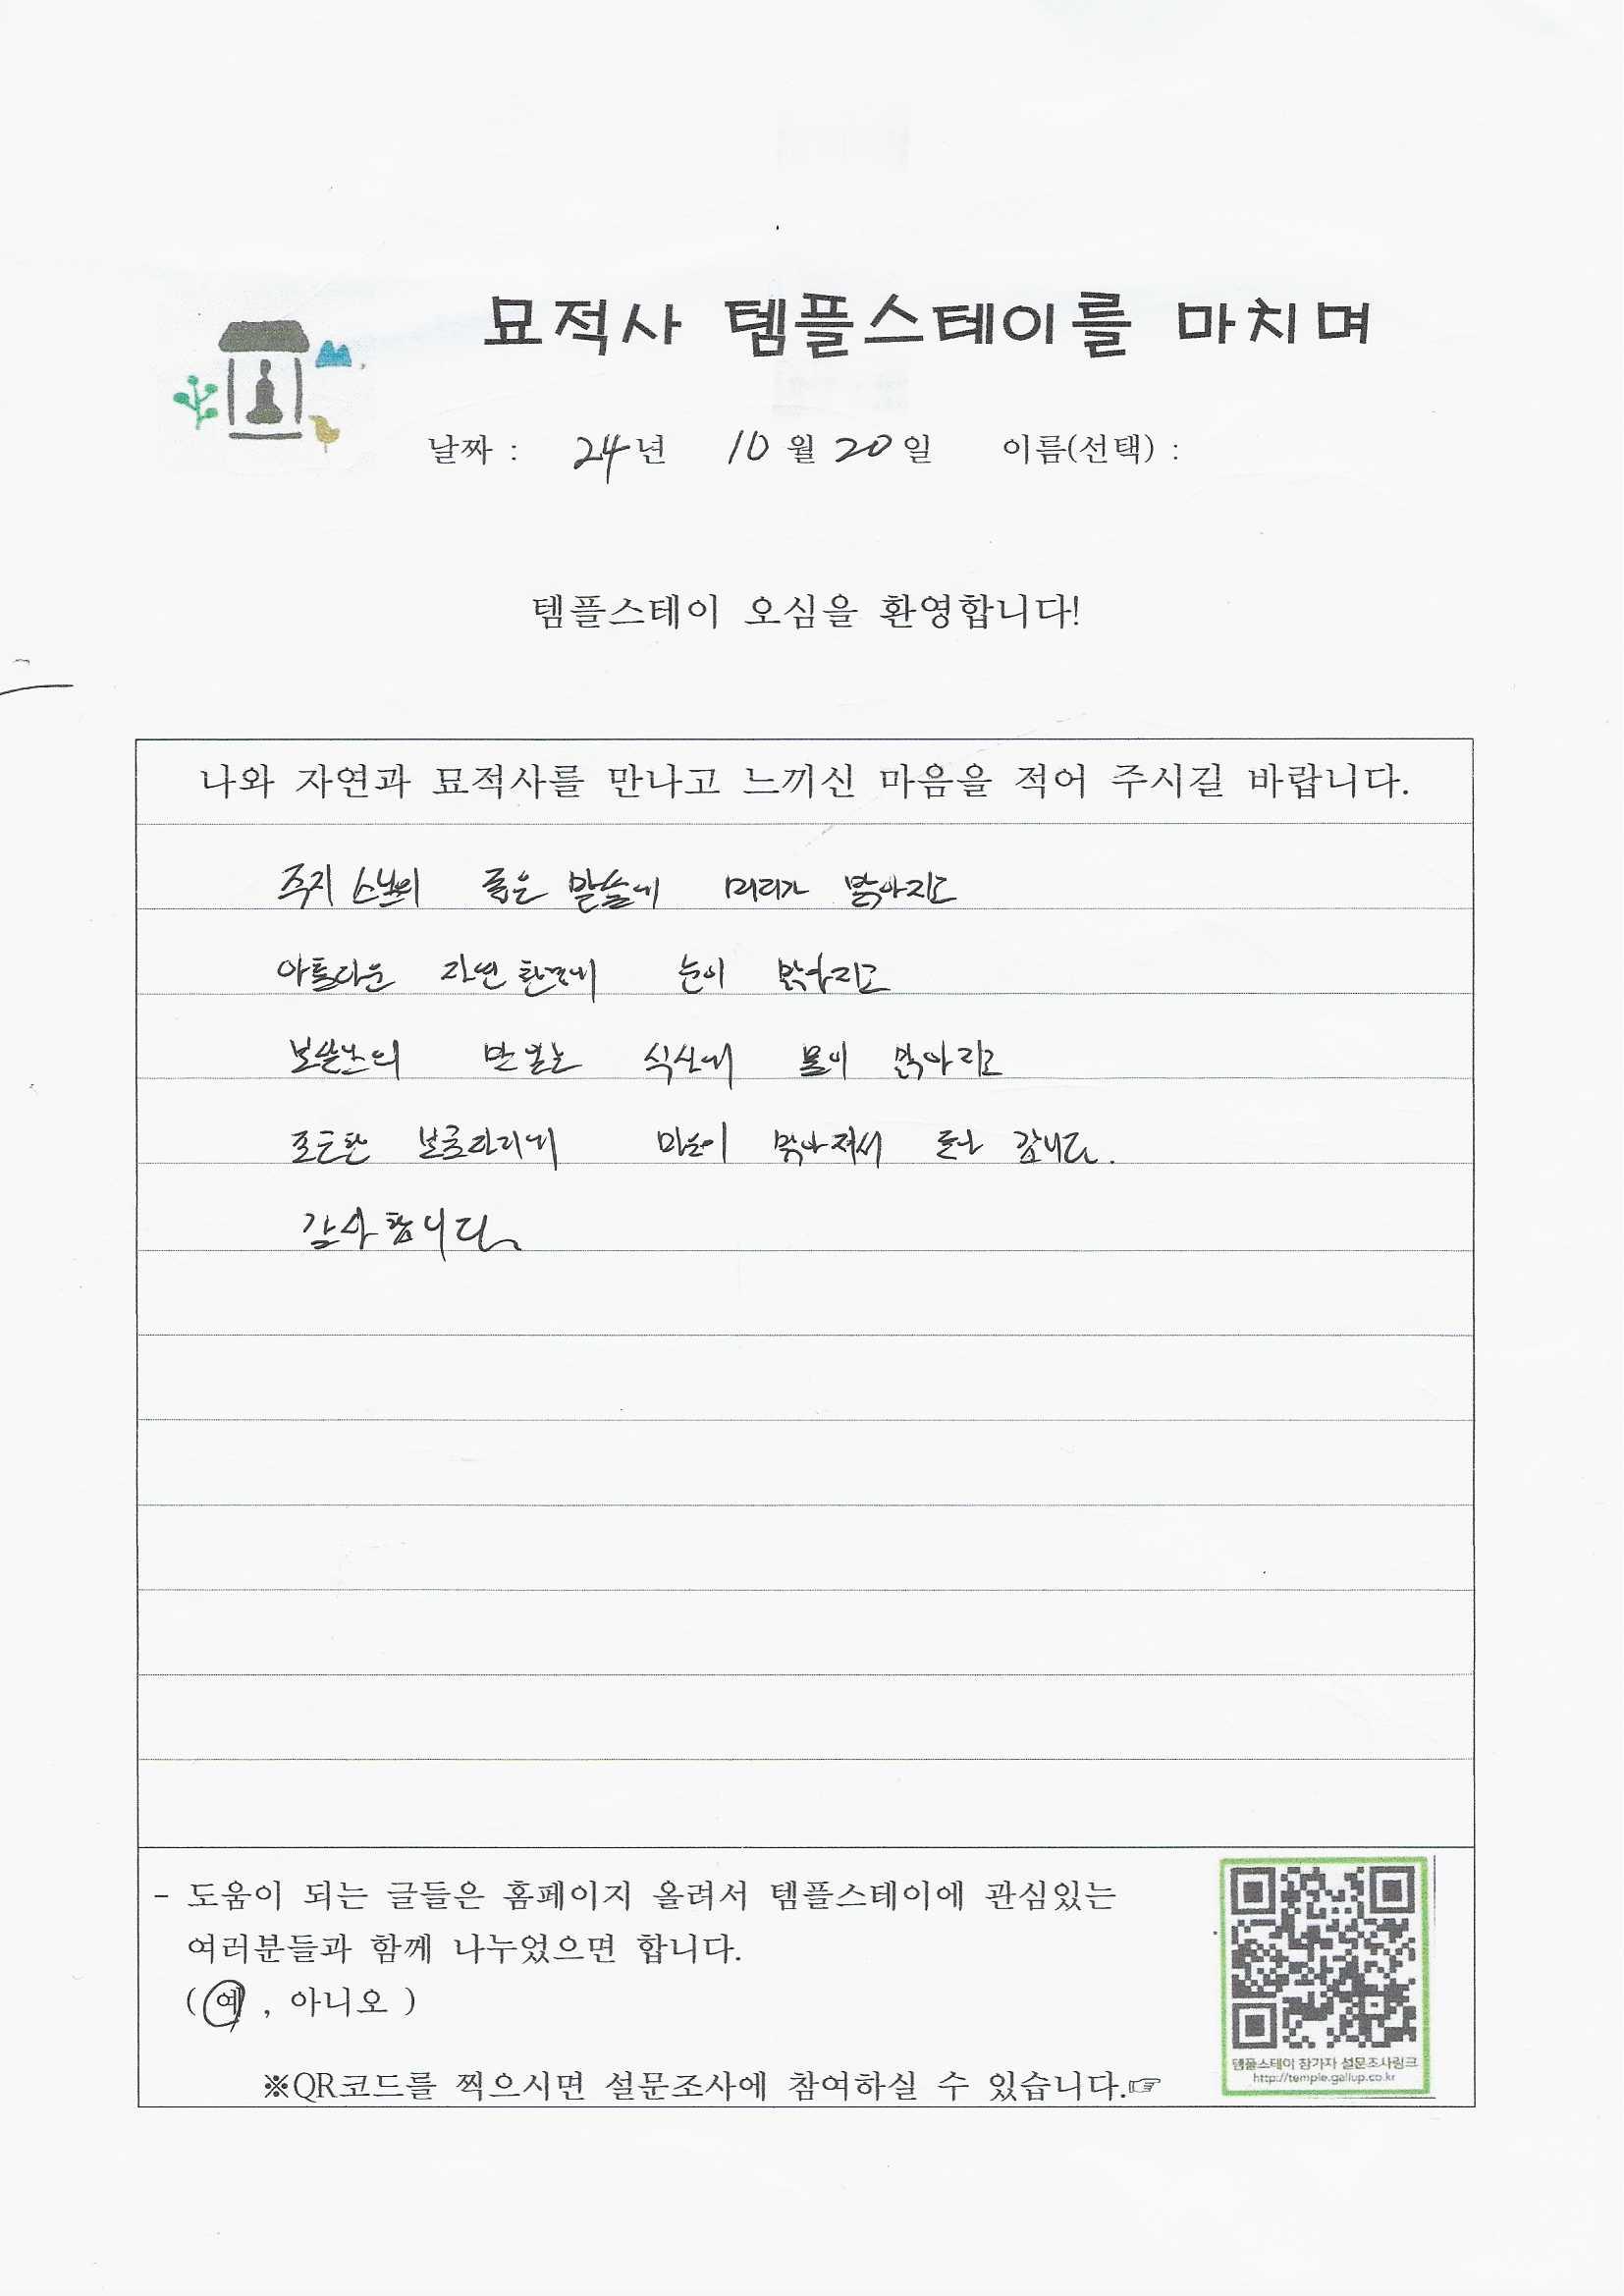 묘적사 템플스테이를 마치며
날짜 : 24년 10월 20일 이름(선택) :
템플스테이 오심을 환영합니다!
나와 자연과 묘적사를 만나고 느끼신 마음을 적어 주시길 바랍니다.
주지 스님의 좋은 말씀에 머리가 맑아지고
아름다운 자연 환경에 눈이 맑아지고
보살님의 맛있는 식사에 몸이 맑아지고
포근한 보금자리에 마음이 맑아져서 갑니다.
감사합니다.
- 도움이 되는 글들은 홈페이지 올려서 템플스테이에 관심있는
여러분들과 함께 나누었으면 합니다.
( 예 , 아니오 )
※QR코드를 찍으시면 설문조사에 참여하실 수 있습니다.☞
템플스테이 참가자 설문조사링크
http://temple.gallup.co.kr